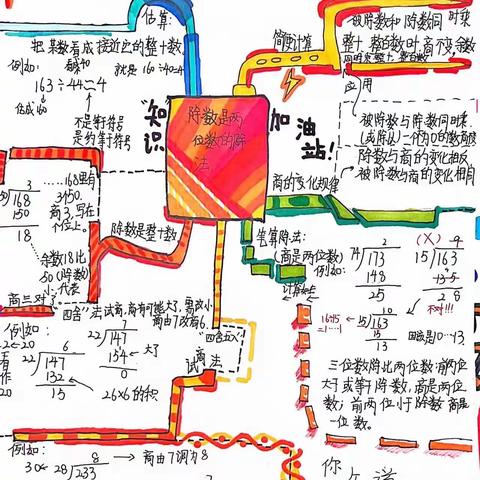 估算:
把除数看成接近它的整十数
例如:
就是160÷40=4
163÷44≈4
估成160
不是等号
是约等号
"知识
加油站!
除数是两位数的除法
简便计算
被除数和除数同时乘
应用
被除数与除数同时乘
除数与商的变化相反
被除数与商的变化相同
商的变化规律
3
168
150
18
……168里有
3个50.
商3,写在
个位上。
余数18比
50(除数)
小,代表
商三对了
除数是整十数
笔算除法:
(商是两位数)
例如:
2
74 173
148
25
(X) 9
15 163
135
28
不对!!!
10
15 163
15
13
因为是10……13
三位数除以两位数:前两位
大于或等于除数,商是两位
数;前两位小于除数商是
一位数。
"四舍"法试商,商有可能大了,要改小
商由7改有6.
例如:
7
22 147
154
0
大了
6
22 147
132
15
22≈20
看作20
26×6的积
"四舍五入"
试商法
例如:
30← 28 233
8
商由7调为8
你